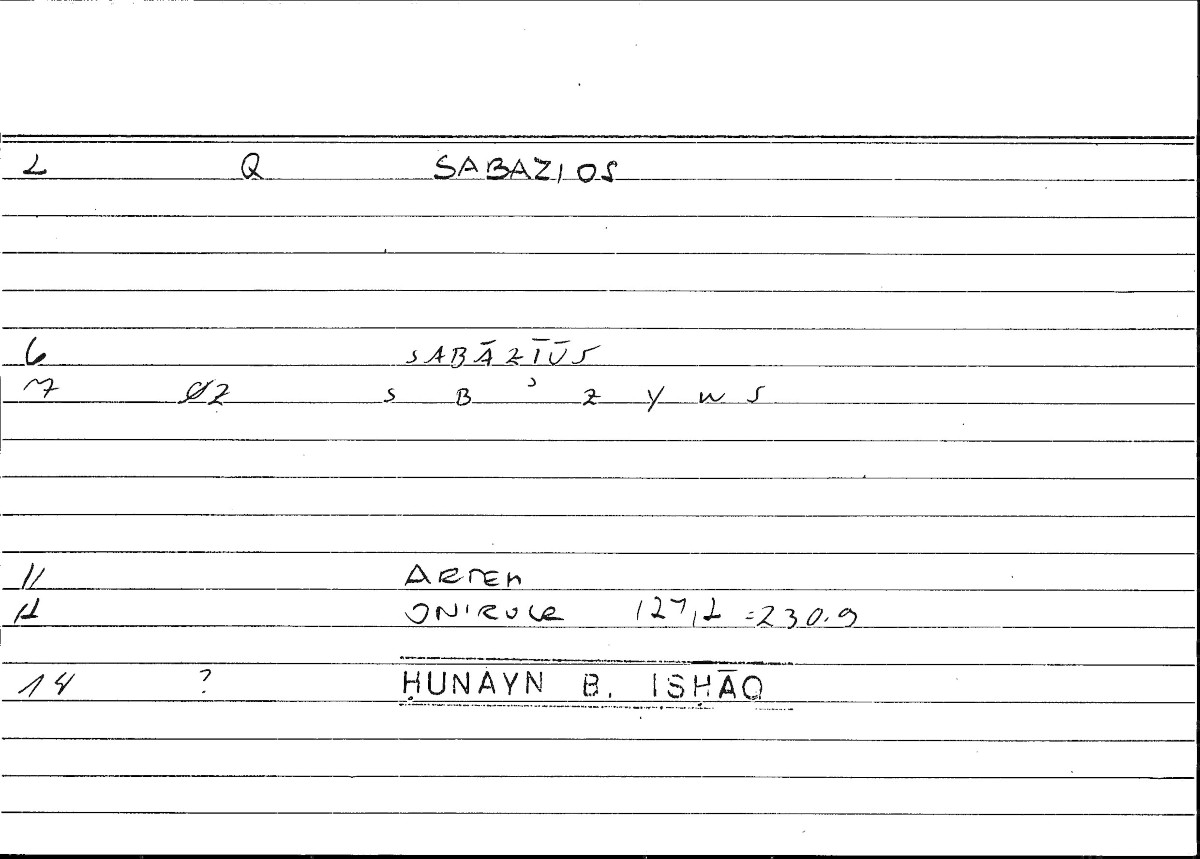 2 Q SABAZIOS
6 SABĀZĪŪS
7 Ø2 S B ʾ Z Y W S
11 ARTEM
12 ONIROCR 127,2 = 230.9
14 ? ḤUNAYN B. ISḤĀQ